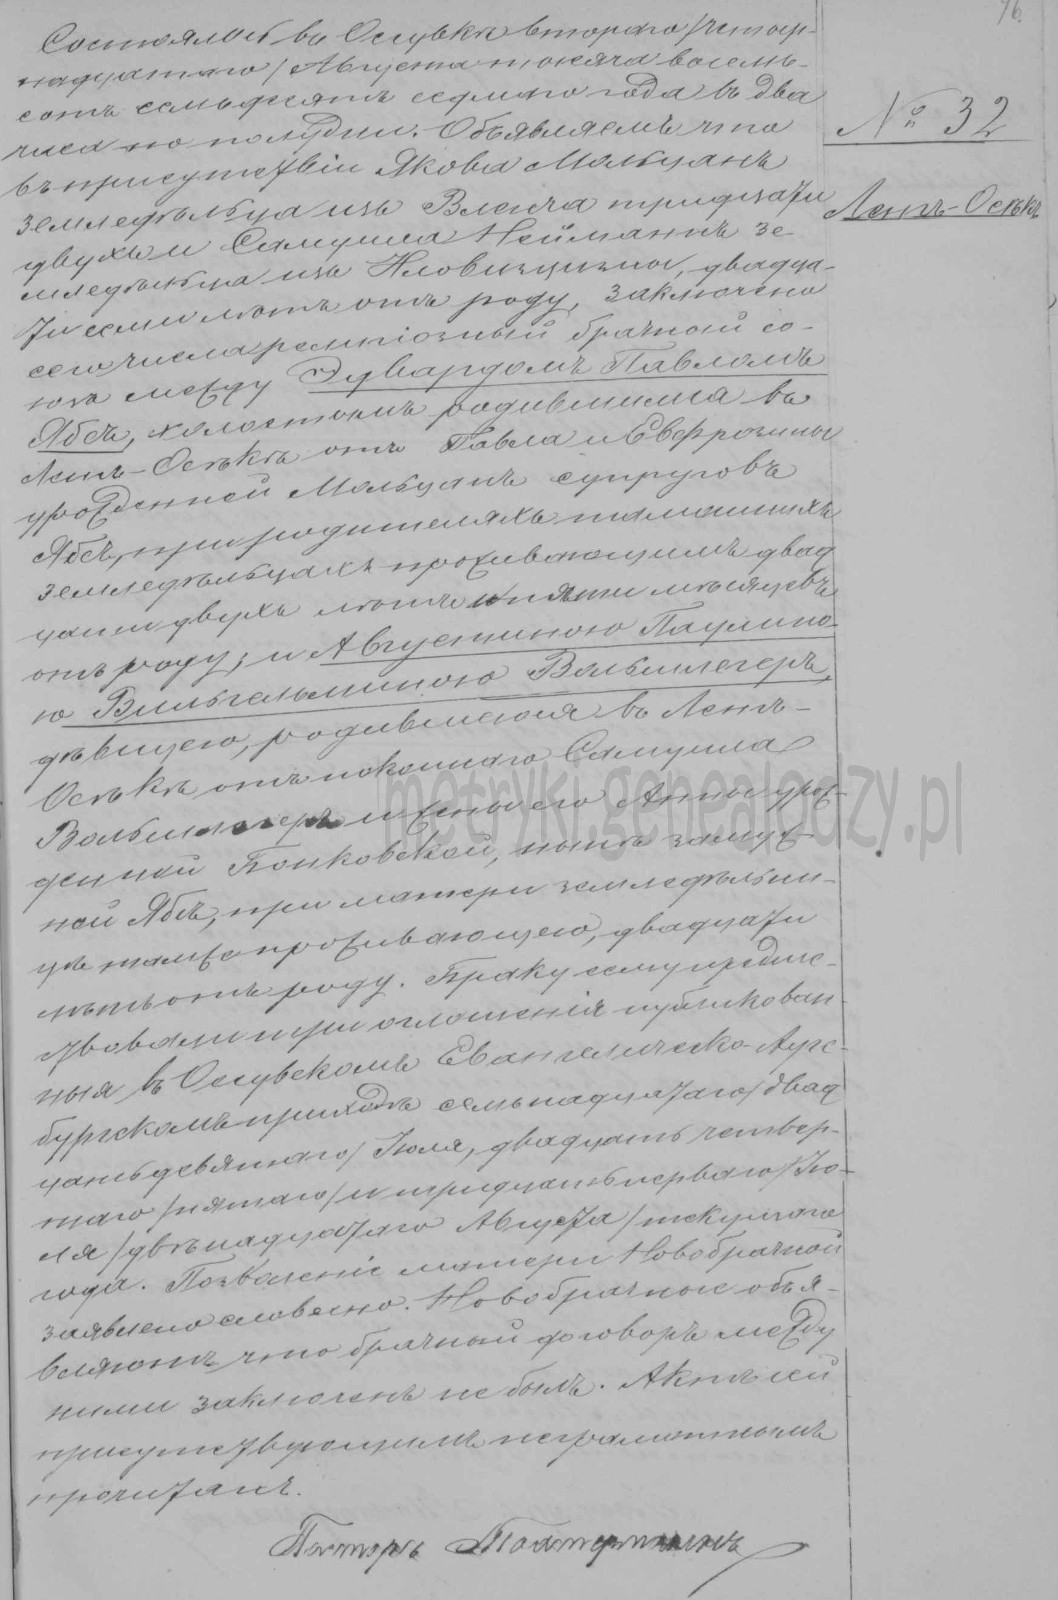 96.
№ 32
Ленъ-Осѣкъ
Состоялось въ Осувкѣ втораго /четыр-
надцатаго/ Августа тысяча восемь-
сотъ семьдесятъ седмаго года въ два
часа по полудни. Объявляемъ что
въ присутствіи Якова Мальцанъ
земледѣльца изъ тридцати
двухъ и Самуила Нейманнъ зе-
мледѣльца изъ двадца-
ти семи лѣтъ отъ роду, заключено
сего числа религіозный брачный со-
юзъ между Эдвардомъ Павломъ
Ябсъ, холостымъ родившимся въ
Ленъ-Осѣкѣ отъ Павла и Ефрозины
урожденней Мальцанъ супруговъ
Ябсъ, при родителяхъ тамошнихъ
земледѣльцахъ проживающимъ двад
цати двухъ лѣтъ и пяти мѣсяцевъ
отъ роду; и Августиною Паулино-
ю Вильгельминою Вольшлегеръ,
дѣвицею, родившеюся въ Ленъ-
Осѣкѣ отъ покойнаго Самуила
Вольшлегеръ и жены его Анны урож-
денной Бонковской, нынѣ замуж-
ной Ябсъ, при матери земледѣльни-
цѣ тамже проживающею, двадцати
лѣтъ отъ роду. Браку сему предше-
ствовали три оглашенія публикован-
ныя въ Осувскомъ Евангелическо-Аугс-
бургскомъ приходѣ семьнадцатаго /двад
цать девятаго/ Іюля, двадцать четвер-
таго /пятаго/ и тридцать перваго /Ію-
ля /двѣнадцатаго Августа/ текущаго
года. Позволеніе матери Новобрачной
заявлено словесно. Новобрачные объя-
вляютъ что брачный договоръ между
ними заключенъ не былъ. Актъ сей
присутствующимъ неграмотнымъ
прочитанъ.
Пасторъ
metryki.genealodzy.pl